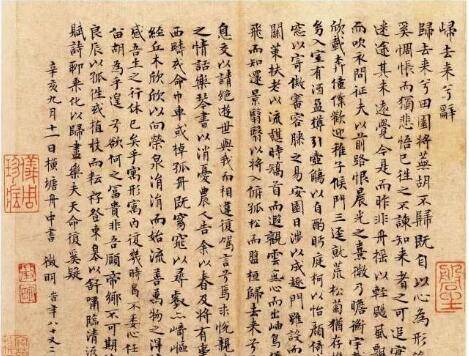 歸去來兮辭
歸去來兮田園將蕪胡不歸既自以心為形役
奚惆悵而獨悲悟已往之不諫知來者之可追實
迷途其未遠覺今是而昨非舟搖以輕颺風飄
而吹衣問征夫以前路恨晨光之熹微乃瞻衡宇載
欣載奔僮僕歡迎稚子候門三逕就荒松菊猶存
幼入室有酒盈樽引壺觴以自酌眄庭柯以怡顏倚
窗以寄傲審容膝之易安園日涉以成趣門雖設而
關策扶老以流憩時矯首而遐觀雲無心而出岫鳥
飛而知還景翳翳以將入撫孤松而盤桓歸去來兮
息交以請絕遊世與我而相違復駕言兮焉求悅親
之情話樂琴書以消憂農人告余以春及將有事
西疇或命巾車或棹孤舟既窈窕以尋壑亦崎嶇
經丘木欣欣以向榮泉涓涓而始流善萬物之得
感吾生之行休已矣乎寓形寓內復幾時曷不委心任
留胡為乎遑遑兮欲何之富貴非吾願帝鄉不可期
良辰以孤往或植杖而耘耔登東皋以舒嘯臨清流
賦詩聊乘化以歸盡樂夫天命復奚疑
辛亥九月十一日橫塘舟中書 徵明 時年八十又二